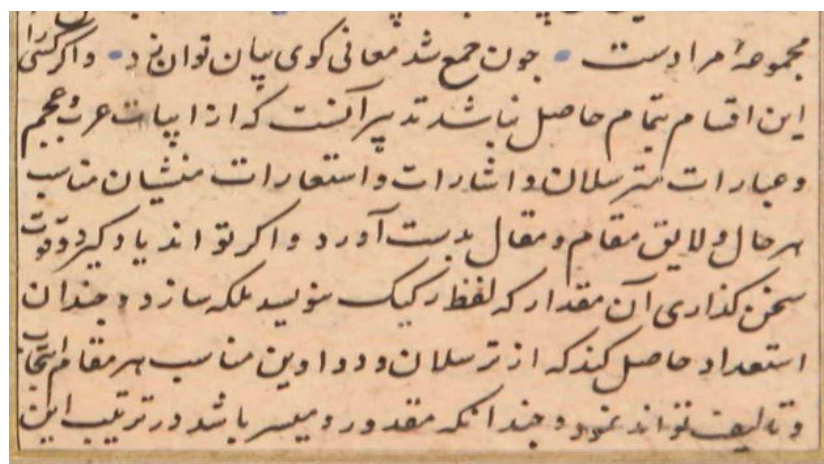 مجموعهٔ مرادست • جون جمع شد معانی کوی بیان توان زد • واکر کسی را
این اقسام بتمام حاصل نباشد تدبیر آنست که از ابیات عرب و عجم
و عبارات مترسلان و اشارات و استعارات منشیان مناسب
هر حال و لایق مقام و مقال بدست آورد و اکر تواند یاد کیرد و قوت
سخن کذاری آن مقدار که لفظ رکیک ننویسد ملکه سازد و جندان
استعداد حاصل کند که از ترسلان و دواوین مناسب هر مقام انتخاب
و تالیف تواند نمود و جندانکه مقدور و میسر باشد در ترتیب این